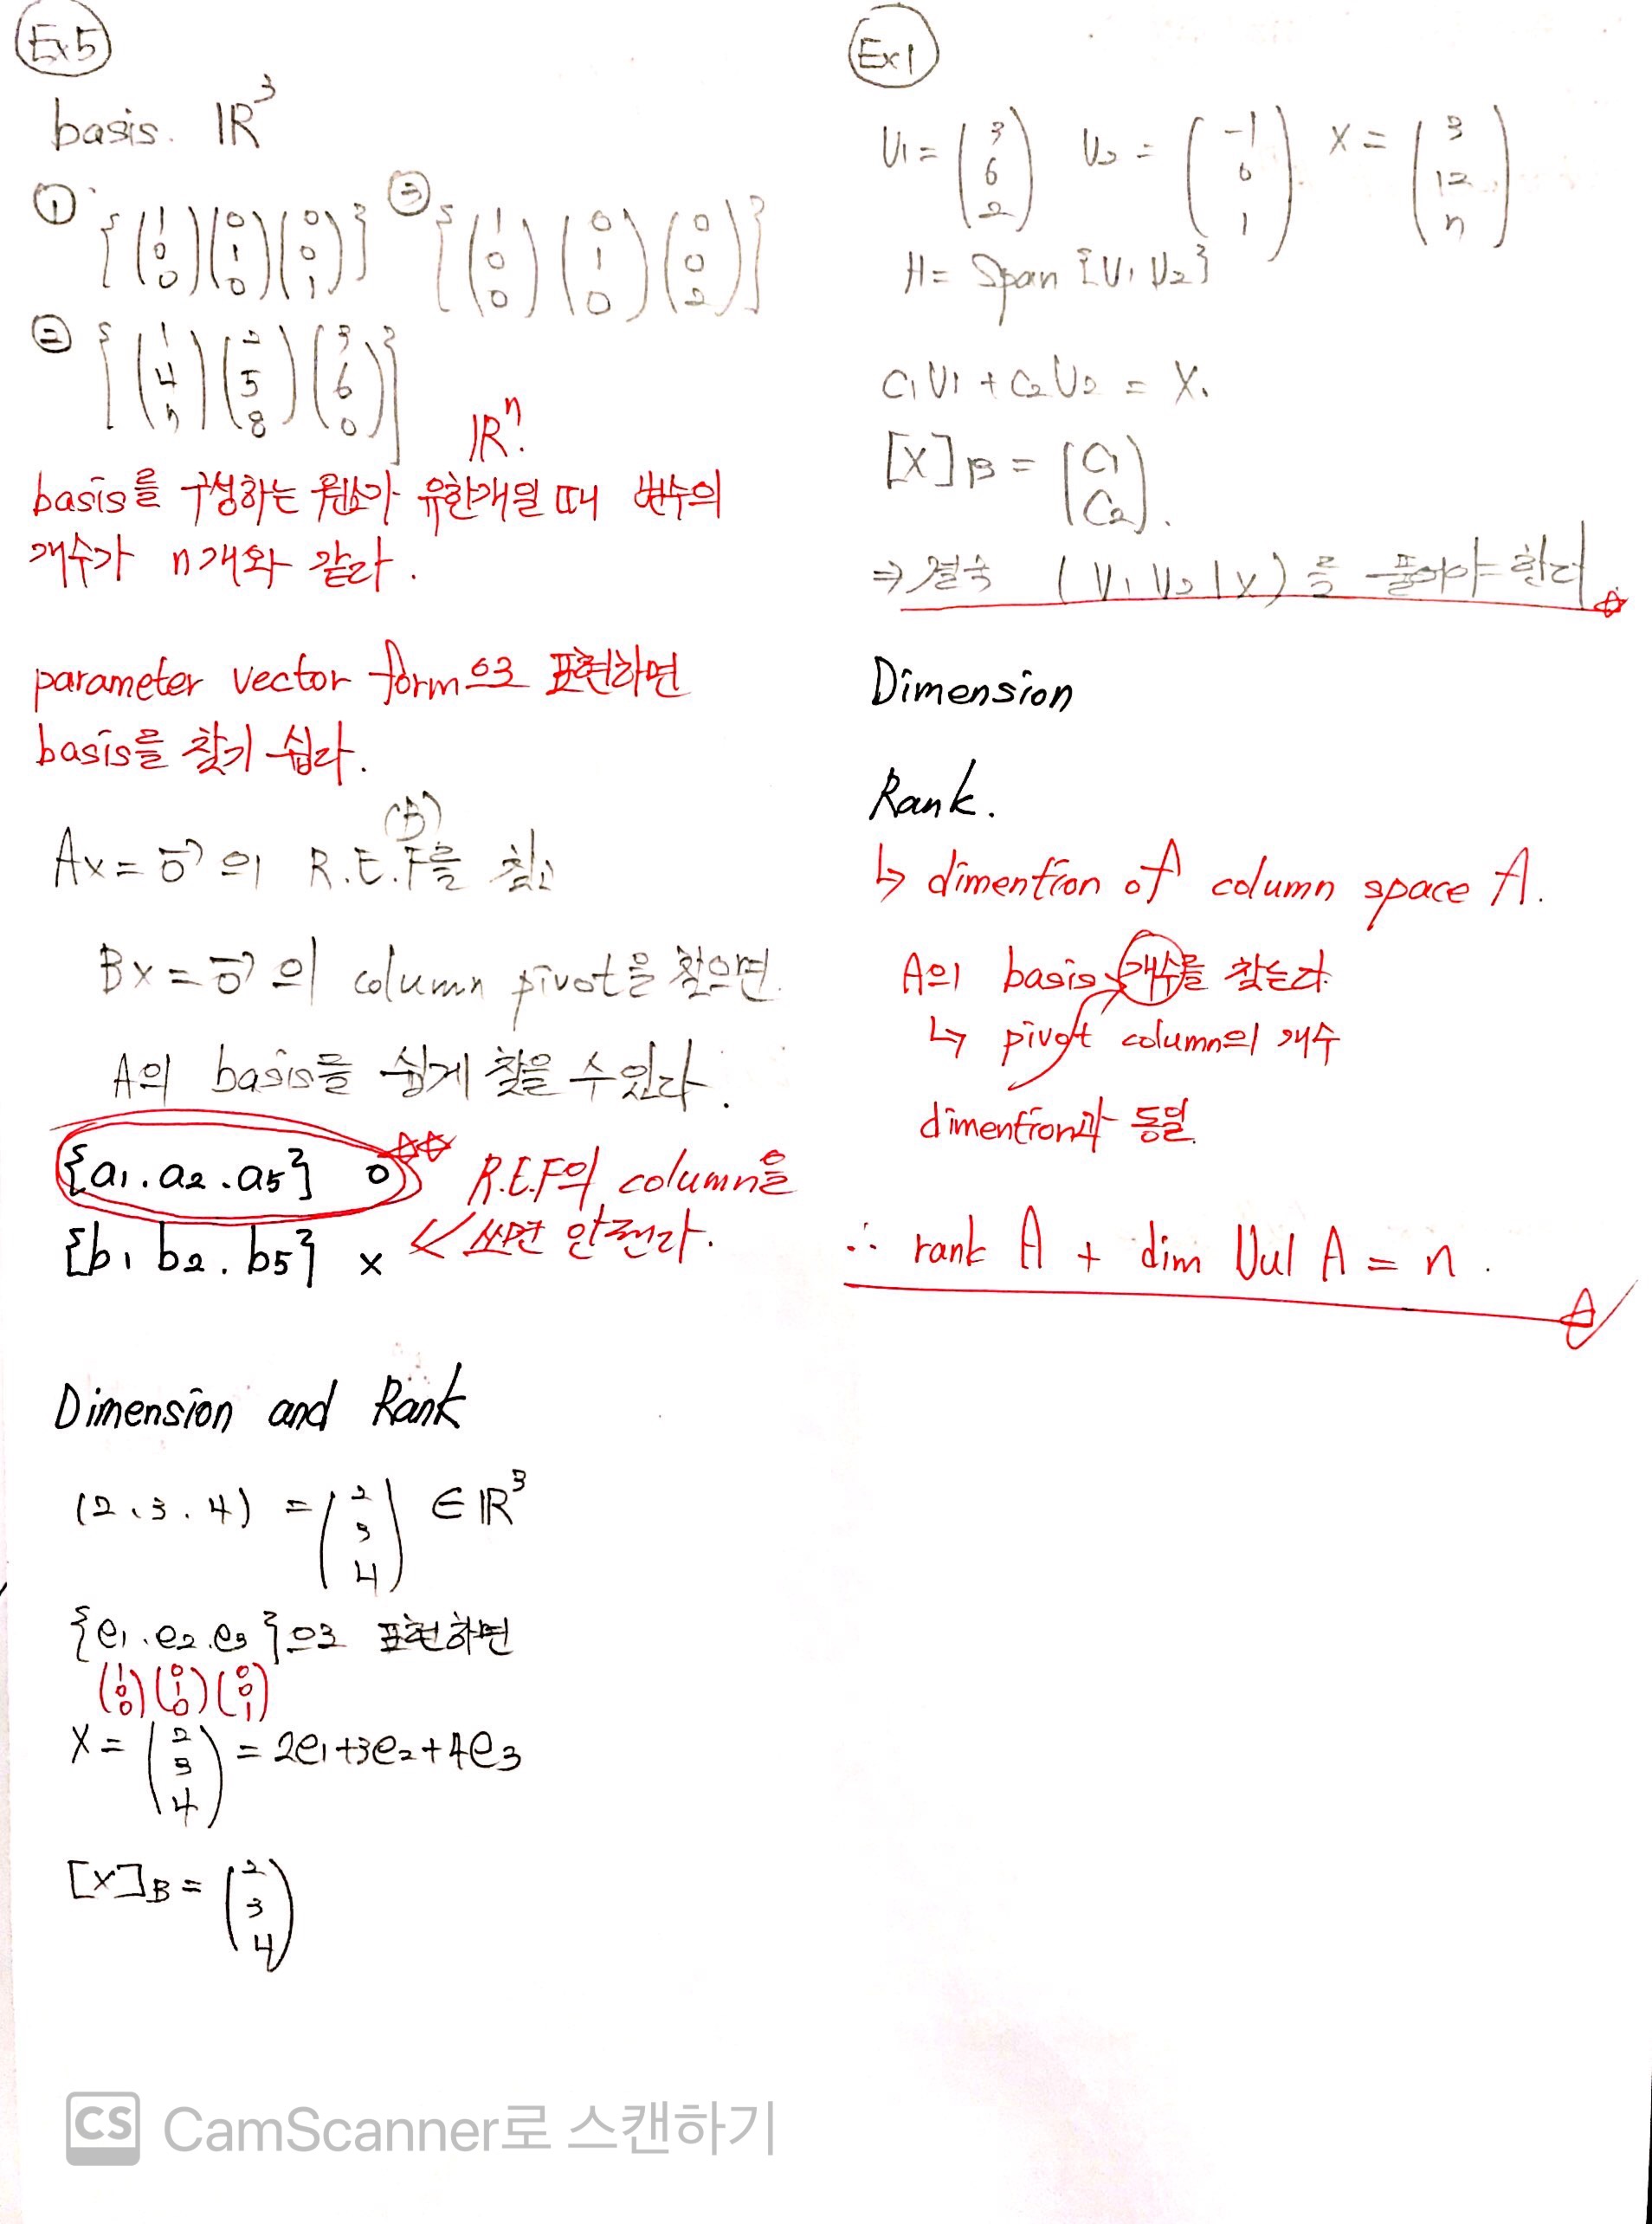 Ex5
basis. ℝ³
① {(1 0 0)(0 1 0)(0 0 1)} ③ {(1 0 0)(0 1 0)(0 0 2)}
② {(1 4 7)(2 5 8)(3 6 0)}
ℝⁿ.
basis를 구성하는 원소가 유한개일 때 변수의
개수가 n개와 같다.
parameter vector form으로 표현하면
basis를 찾기 쉽다.
(B)
Ax = 0⃗ 의 R.E.F를 찾고
Bx = 0⃗ 의 column pivot을 찾으면.
A의 basis를 쉽게 찾을 수 있다.
{a₁. a₂. a₅} o
R.E.F의 column을
{b₁ b₂. b₅} x ≪ 쓰면 안된다.
Dimension and Rank
(2, 3, 4) = (2 3 4) ∈ ℝ³
{e₁. e₂. e₃}으로 표현하면
(1 0 0)(0 1 0)(0 0 1)
X = (2 3 4) = 2e₁+3e₂+4e₃
[X]B = (2 3 4)
Ex1
V₁ = (3 6 2) V₂ = (-1 0 1) X = (3 12 7)
H = Span {V₁ V₂}
C₁V₁ + C₂V₂ = X.
[X]B = (C₁ C₂).
⇒ 결국 (V₁ V₂ | X)를 풀어야 한다
Dimension
Rank.
↳ dimention of column space A.
A의 basis 개수를 찾는다.
↳ pivot column의 개수
dimention과 동일.
∴ rank A + dim Nul A = n.
CS CamScanner로 스캔하기